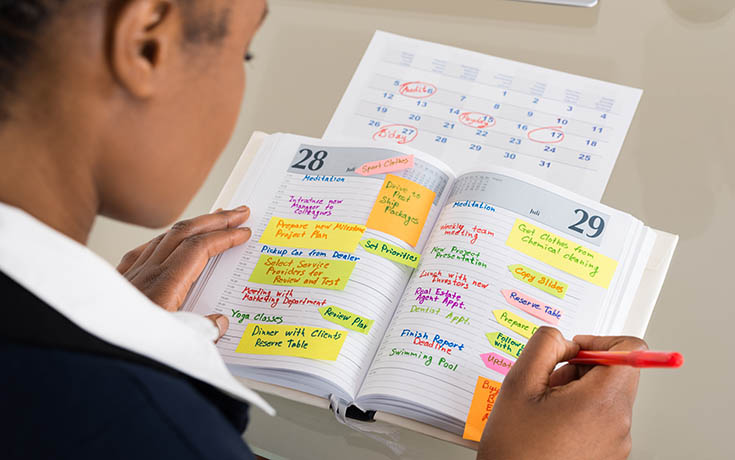 5 Audit 6 1 2 3 4
12 13 14 Payday 15 8 9 10 11
19 20 B'day 17 18
26 24 25
30 31
28
Juli
Sport Clothes
Meditation
Drive to
Post
Ship
Packages
Introduce new
Manager to
Colleagues
Prepare new Milestone
Project Plan
Set Priorities
Pickup Car from Dealer
Select Service
Providers for
Review and Test
Meeting with
Marketing Department
Review Plan
Yoga Classes
Dinner with Clients
Reserve Table
Juli
29
Meditation
Weekly team
meeting
Get Clothes from
Chemical cleaning
New Project
Presentation
Copy Slides
Lunch with new
Investors
Real Estate
Agent Appt.
Reserve Table
Dentist Appt.
Prepare
Finish Report
Deadline
Follow
with
Swimming Pool
Update